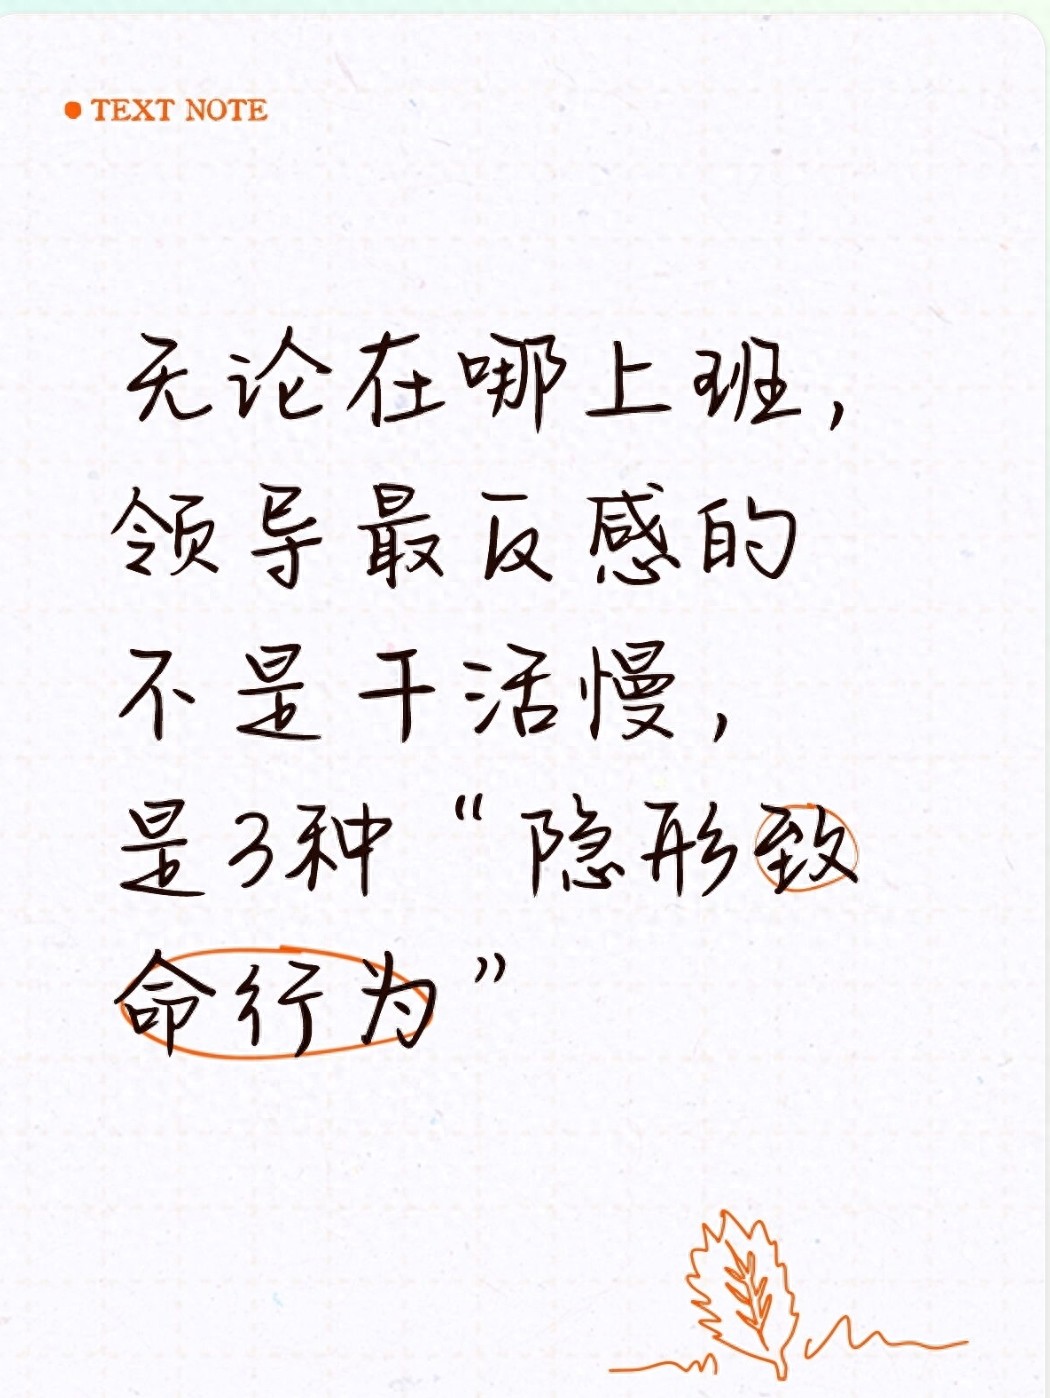 TEXT NOTE
无论在哪上班，
领导最反感的
不是干活慢，
是3种“隐形致
命行为”